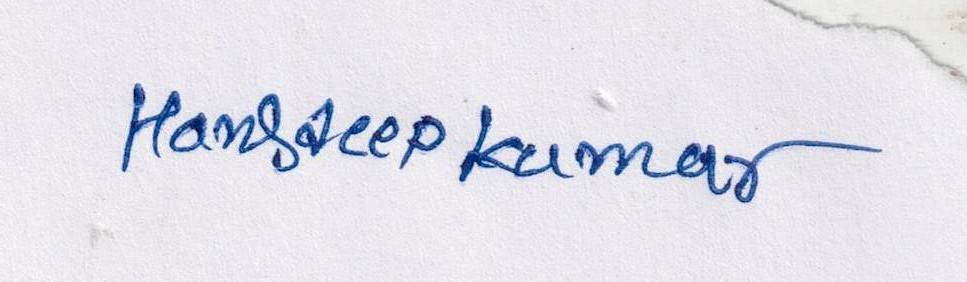 Hansdeep Kumar